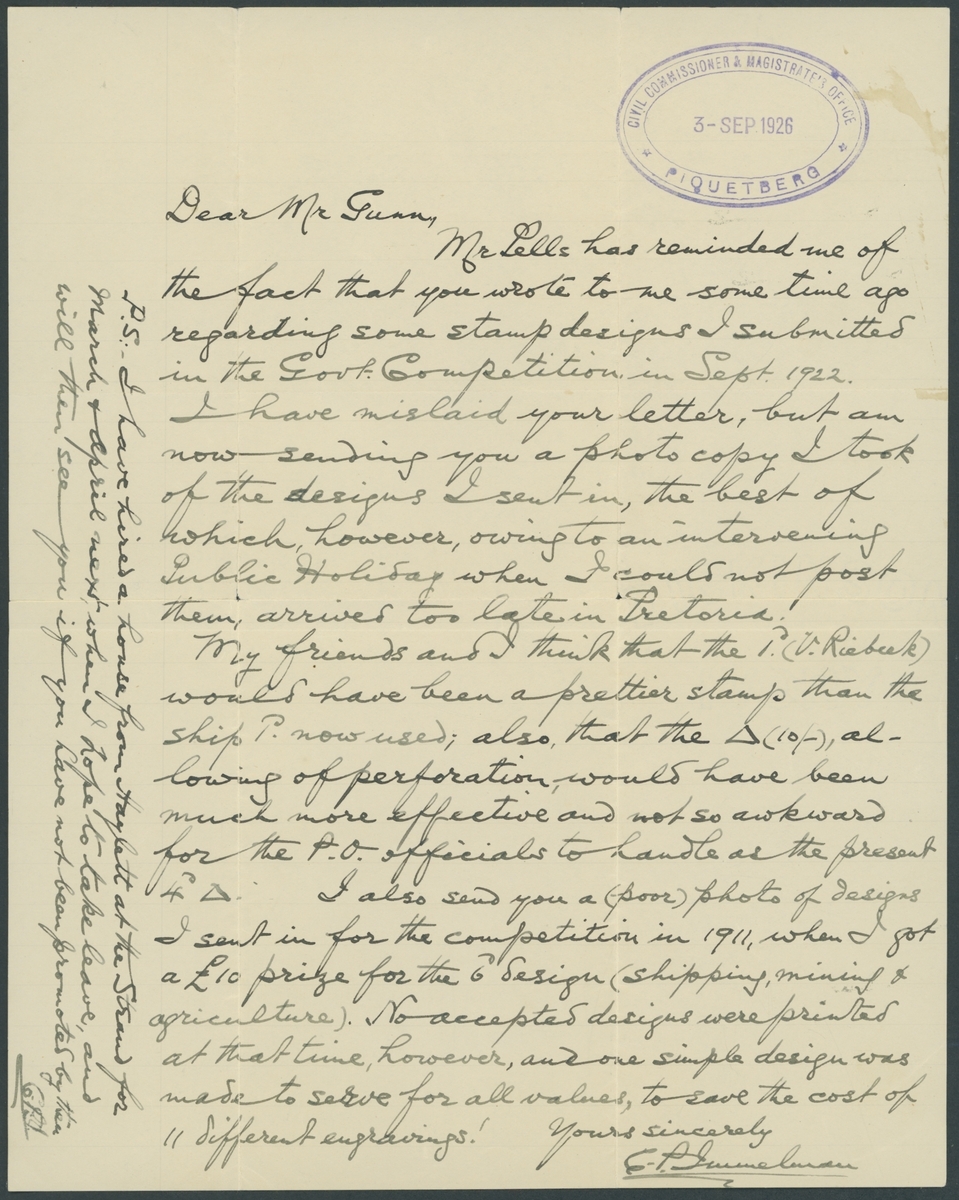 CIVIL COMMISSIONER & MAGISTRATE'S OFFICE
3 - SEP. 1926
PIQUETBERG
Dear Mr Gunn,
Mr Pells has reminded me of
the fact that you wrote to me some time ago
regarding some stamp designs I submitted
in the Govt. Competition in Sept. 1922.
I have mislaid your letter, but am
now sending you a photo copy I took
of the designs I sent in, the best of
which, however, owing to an intervening
Public Holiday when I could not post
them, arrived too late in Pretoria!
My friends and I think that the 1. (V. Riebeek)
would have been a prettier stamp than the
ship 1. now used; also, that the Δ (10/-), al-
lowing of perforation, would have been
much more effective and not so awkward
for the P.O. officials to handle as the present
4 Δ. I also send you a (poor) photo of designs
I sent in for the competition in 1911, when I got
a £10 prize for the 6 design (shipping, mining &
agriculture). No accepted designs were printed
at that time, however, and one simple design was
made to serve for all values, to save the cost of
11 different engravings! Yours sincerely
Immelman
P.S:- I have hired a house from Haylett at the Strand for
March & April next, when I hope to take leave, and
will then see you if you have not been promoted by then